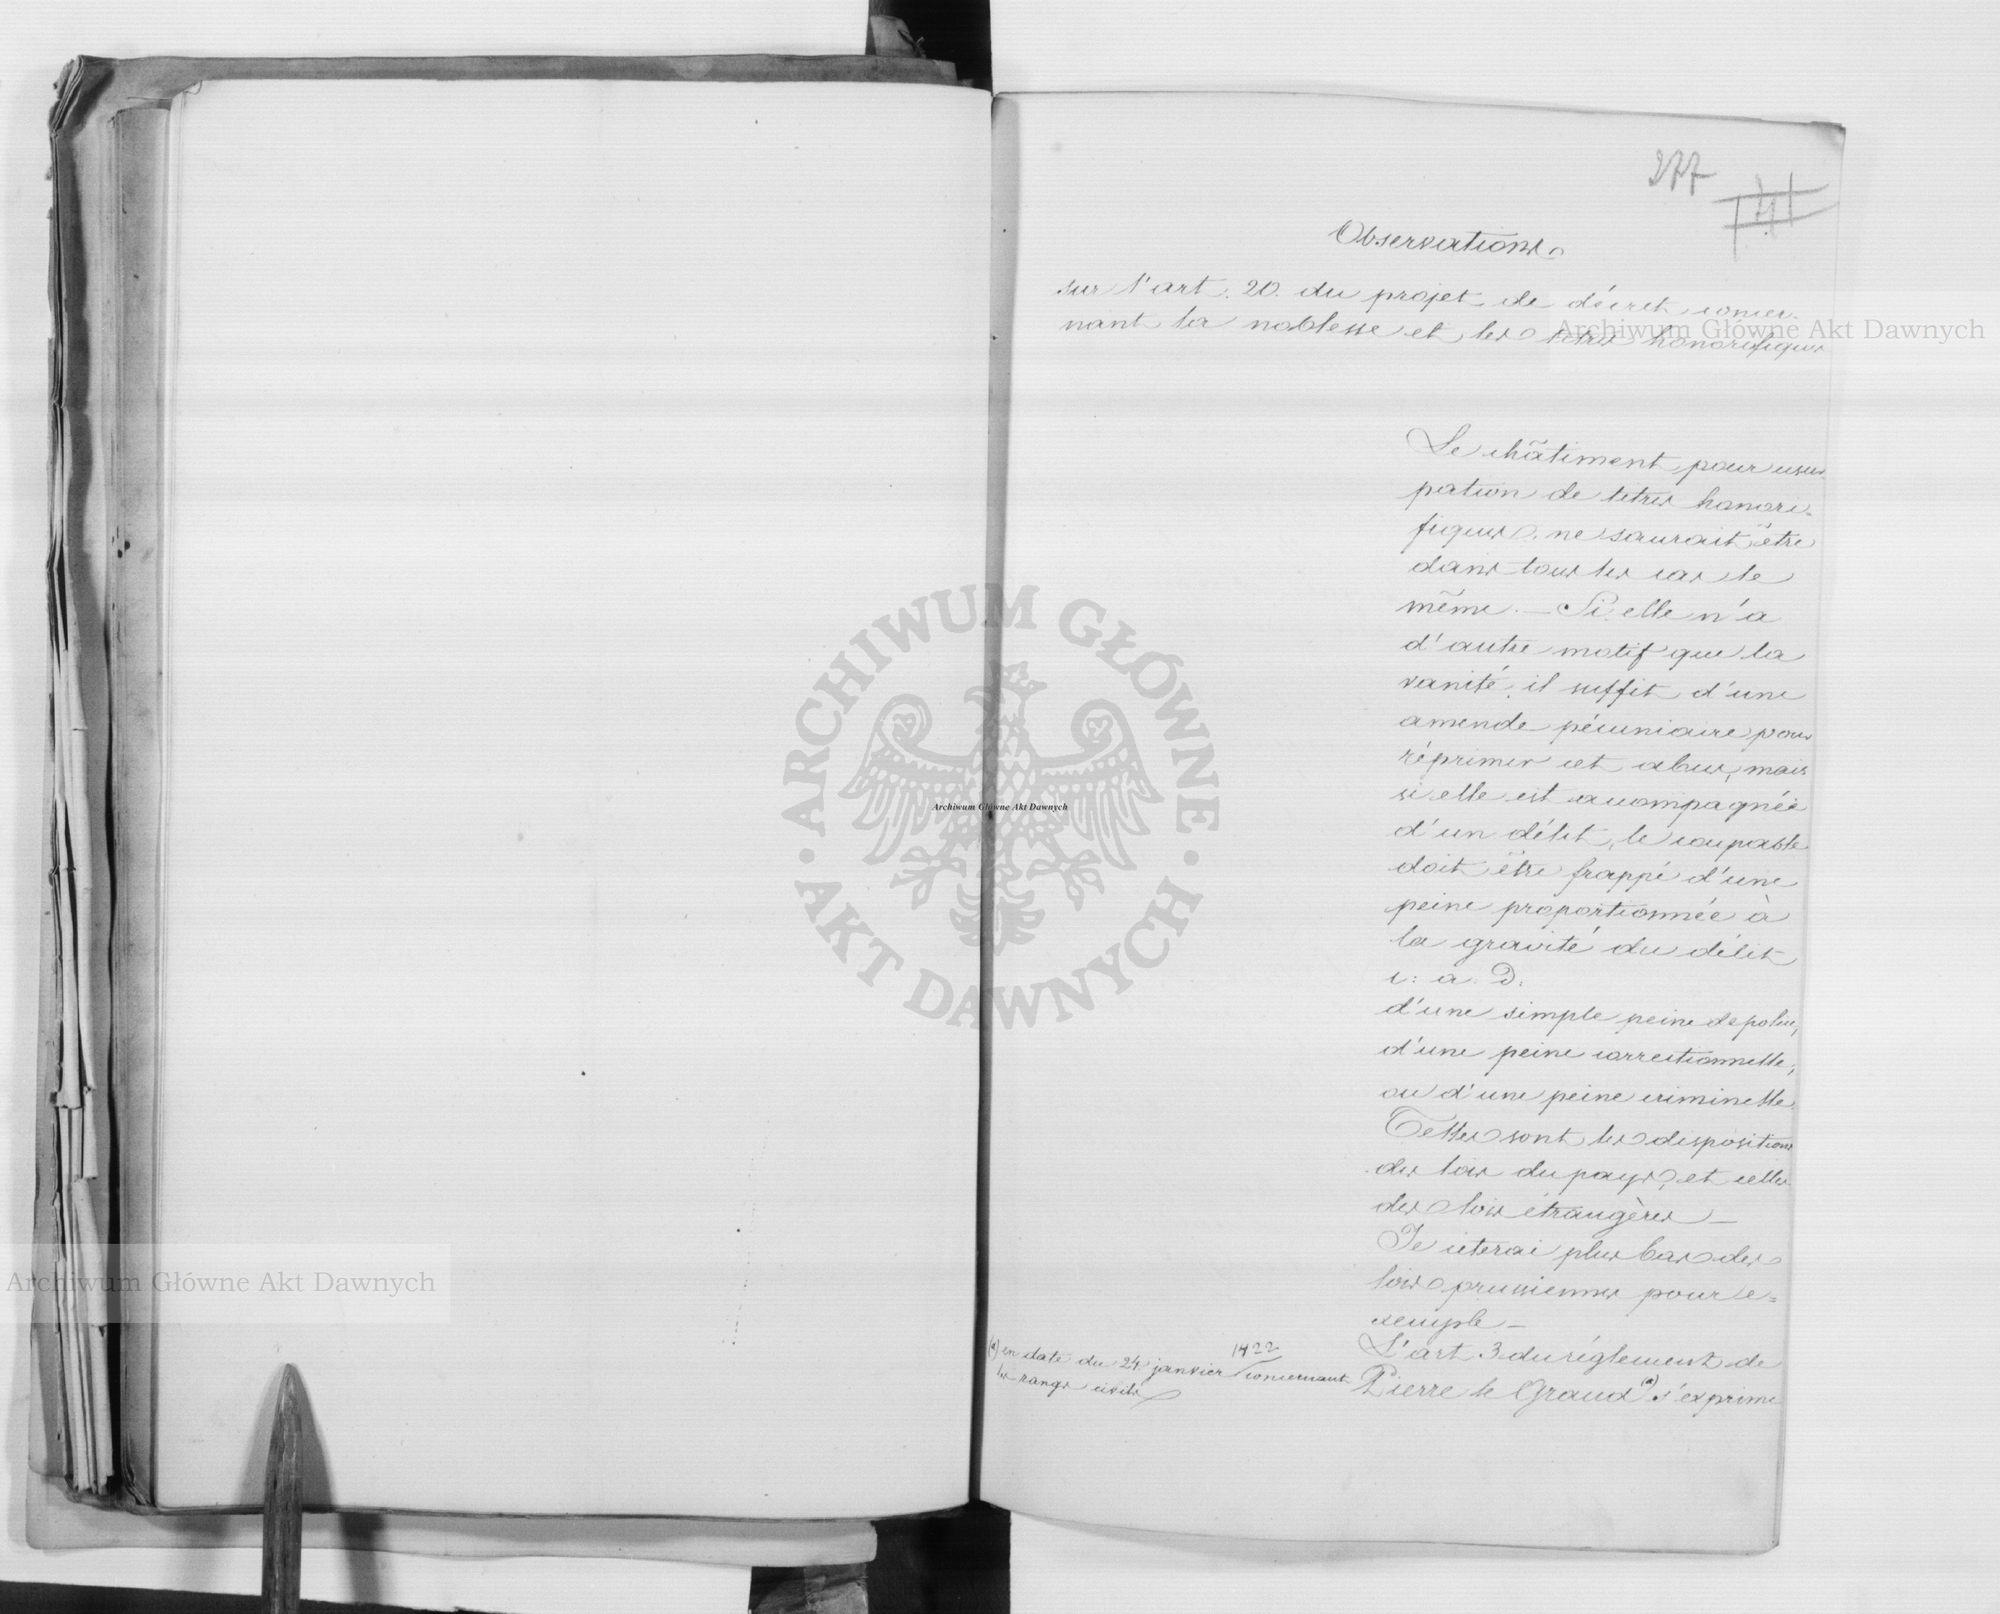 277
41
Observations
sur l'art. 20. du projet de décret concer-
nant la noblesse et les titres honorifiques
Le châtiment pour usur-
pation de titres honori-
fiques ne saurait être
dans tous les cas le
même. — Si elle n'a
d'autre motif que la
vanité, il suffit d'une
amende pécuniaire pour
réprimer cet abus, mais
si elle est accompagnée
d'un délit, le coupable
doit être frappé d'une
peine proportionnée à
la gravité du délit
c: a. D.
d'une simple peine de police,
d'une peine correctionnelle,
ou d'une peine criminelle.
Telles sont les dispositions
des lois du pays, et celles
des lois étrangères —
Je citerai plus bas des
lois prussiennes pour e-
xemple —
L'art 3 du réglement de
Pierre le Grand (a) s'exprime
(a) en date du 24 janvier 1722 concernant
les rangs civils
Archiwum Główne Akt Dawnych
Archiwum Główne Akt Dawnych
Archiwum Główne Akt Dawnych
ARCHIWUM GŁÓWNE · AKT DAWNYCH ·